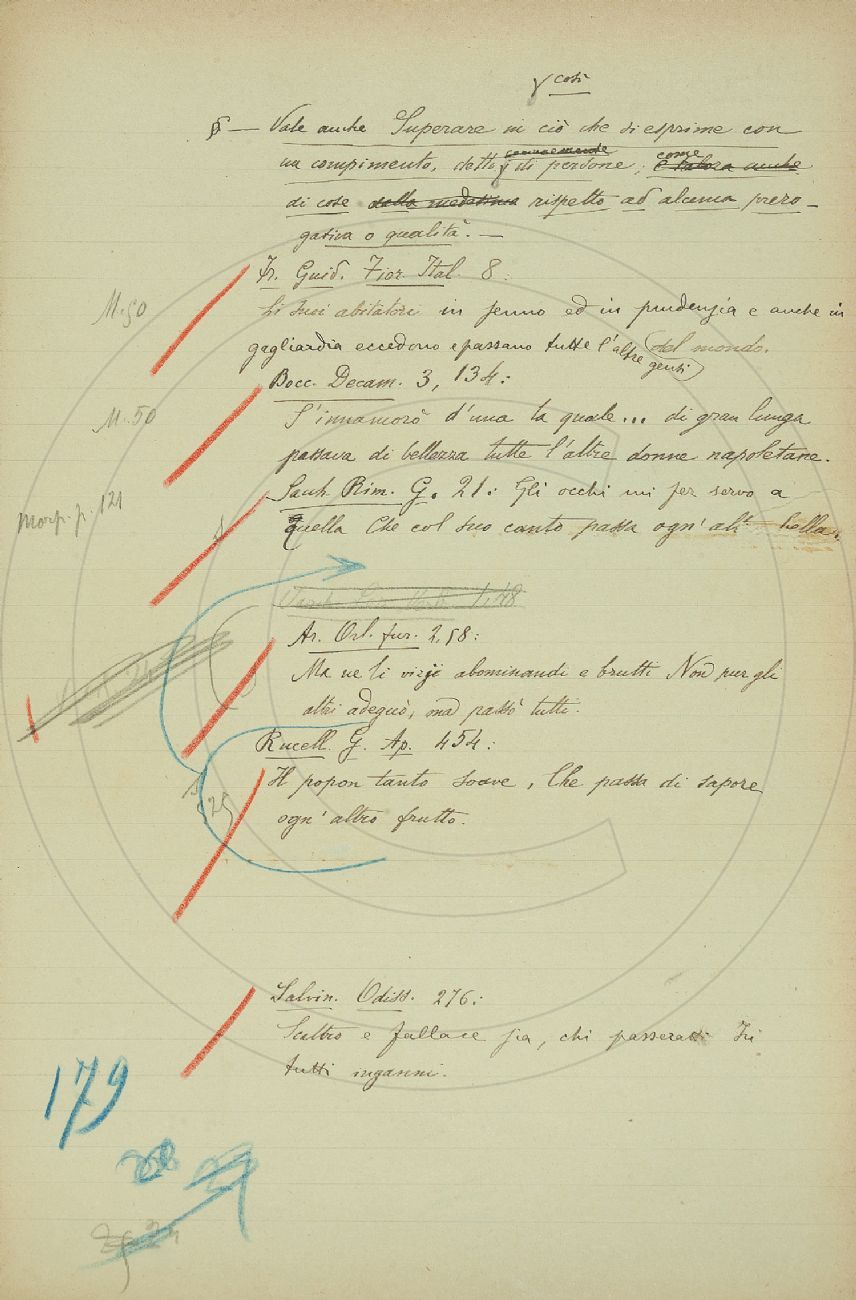 così
§ — Vale anche Superare in ciò che si esprime con
un compimento, detto comunemente di persone; come e talora anche
di cose della medesima rispetto ad alcuna prero-
gativa o qualità. —
Fr. Guid. Fior. Ital. 8:
M. 50
Li suoi abitatori in senno ed in prudenzia e anche in
gagliardia eccedono e passano tutte l'altre genti del mondo.
Bocc. Decam. 3, 134:
M. 50
S'innamorò d'una la quale... di gran lunga
passava di bellezza tutte l'altre donne napoletane.
Morp. p. 121
Sacch. Rim. G. 21: Gli occhi mi fer servo a
quella Che col suo canto passa ogn' alt. bella.
1,48
Ar. Orl. fur. 2,58:
Ma ne li vizi abominandi e brutti Non pur gli
altri adeguò, ma passò tutti.
Rucell. G. Ap. 454:
Il popon tanto soave, Che passa di sapore
ogn' altro frutto.
Salvin. Odiss. 276:
Scaltro e fallace fia, chi passeratti In
tutti inganni.
179